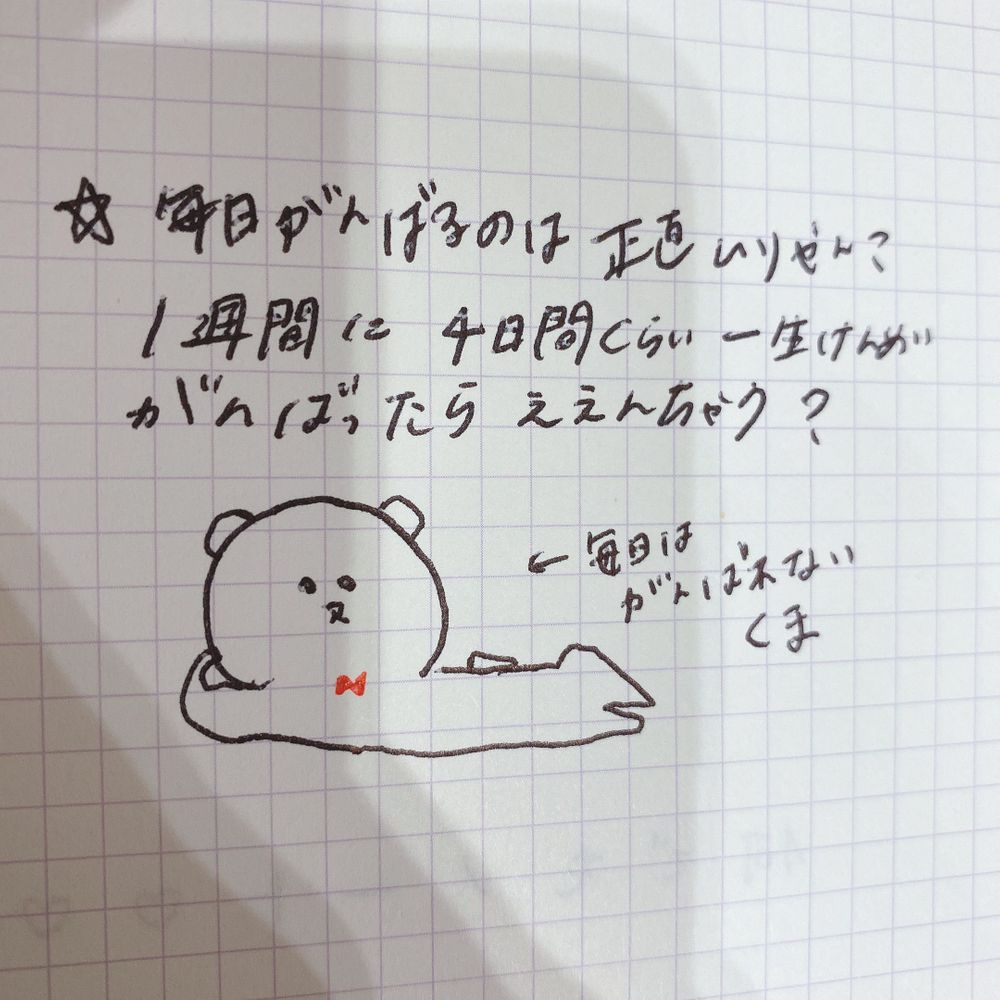 ☆ 毎日がんばるのは 正直 ムリやん?
1週間に 4日間くらい 一生けんめい
がんばったら ええんちゃう?
← 毎日は
がんばれない
くま